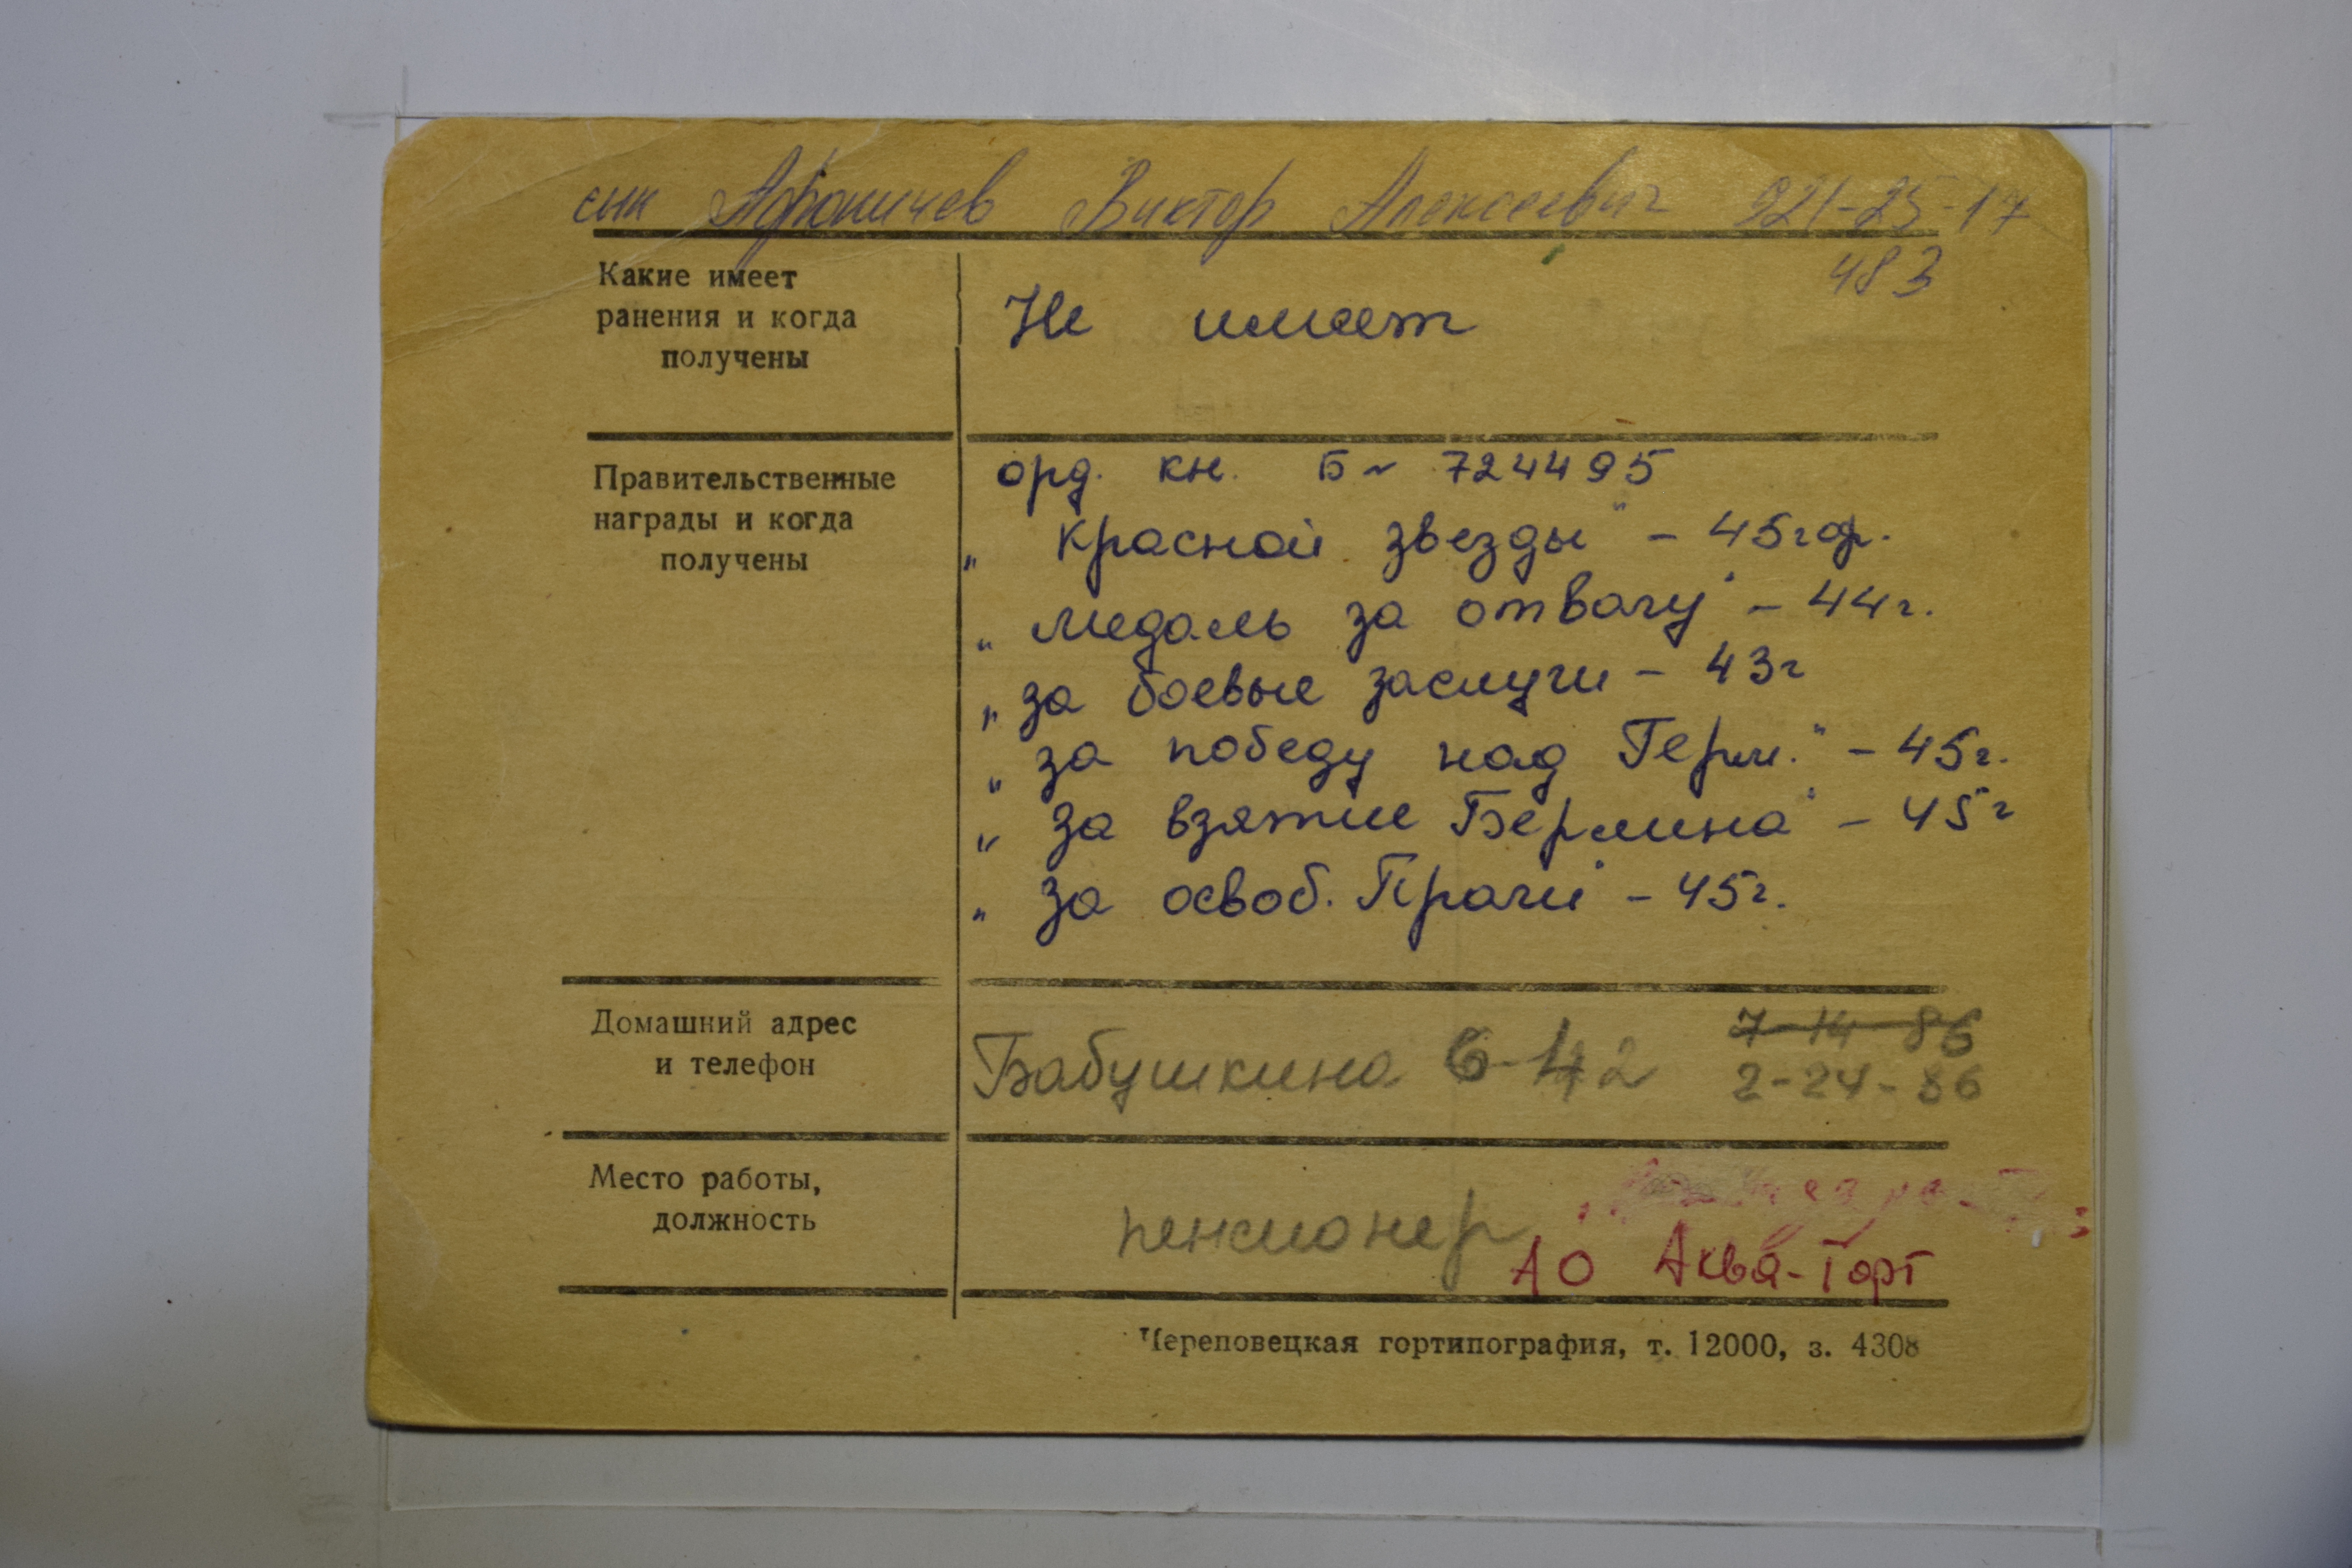 сын Афоничев Виктор Алексеевич 921-25-17
483
Какие имеет
ранения и когда
получены
Не имеет
Правительственные
награды и когда
получены
орд. кн. Б~ 724495
„ Красной звезды" - 45г
„ медаль за отвагу" - 44г.
„ за боевые заслуги - 43г
„ за победу над Герм." - 45г.
„ за взятие Берлина" - 45г
„ за освоб. Праги" - 45г.
Домашний адрес
и телефон
Бабушкина 6-42
7-14-86
2-24-86
Место работы,
должность
пенсионер
АО Аква-Торг
Череповецкая гортипография, т. 12000, з. 4308